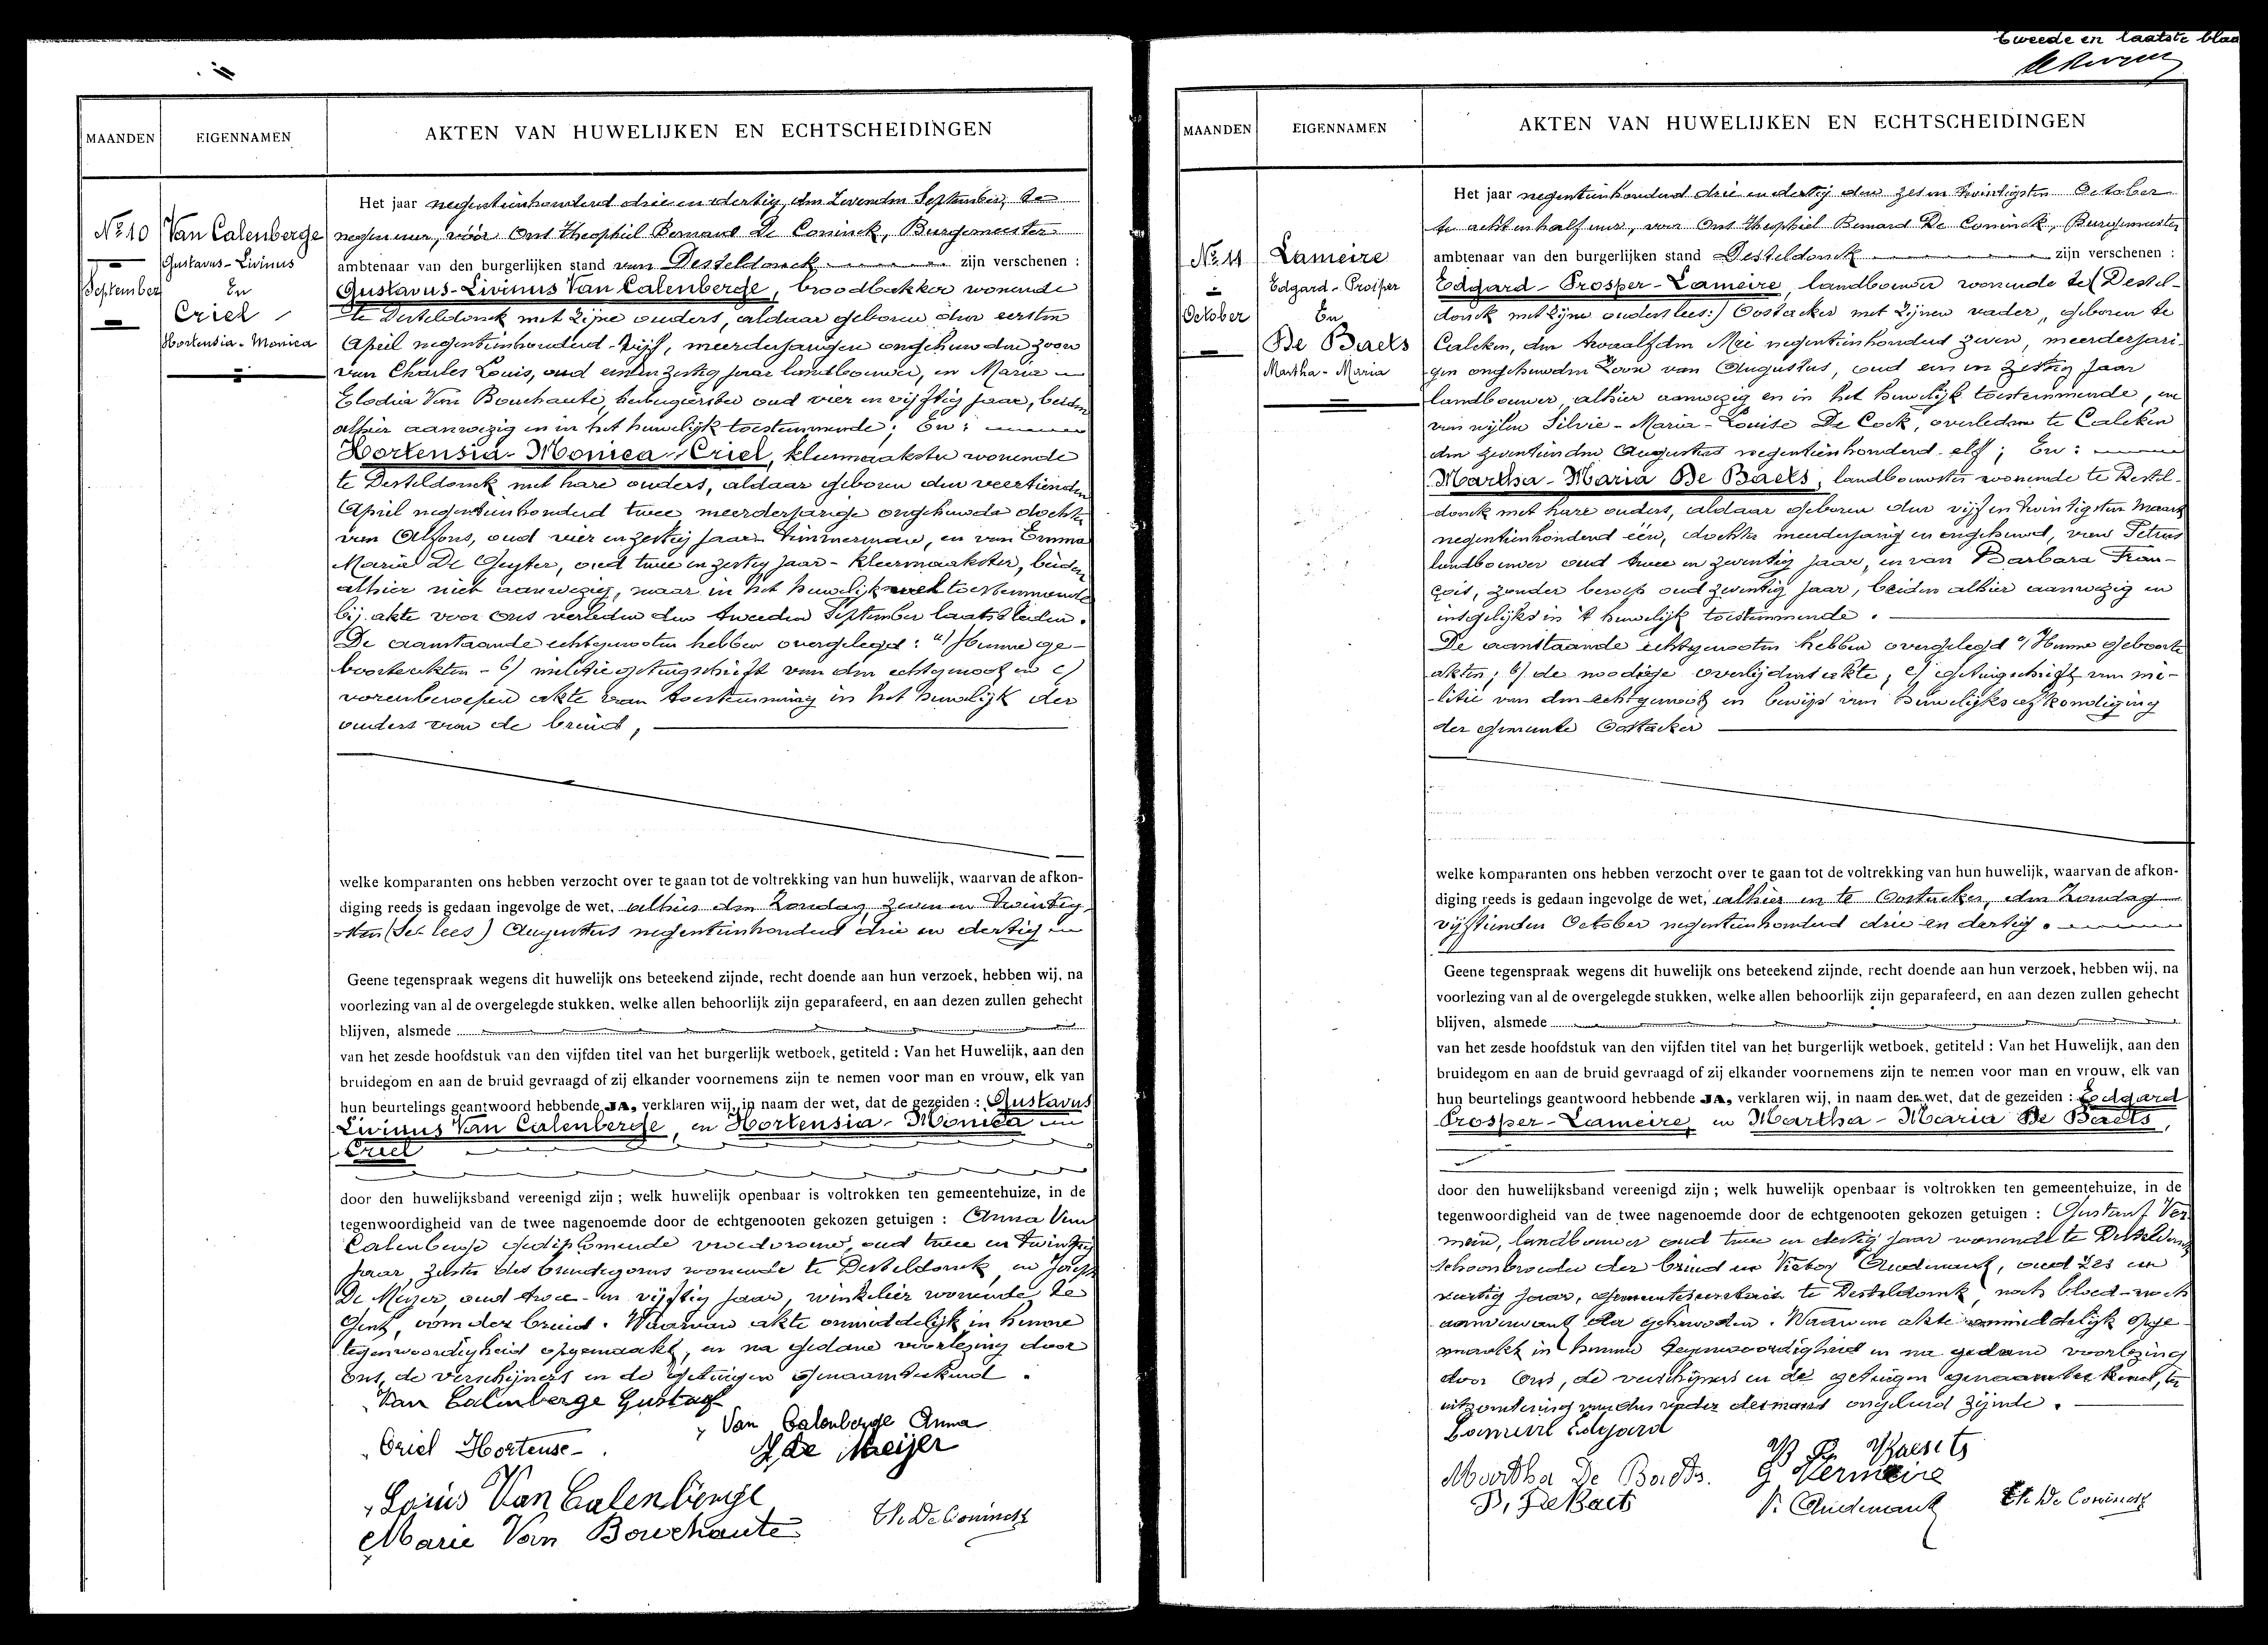 tweede en laatste blad
MAANDEN
EIGENNAMEN
AKTEN VAN HUWELIJKEN EN ECHTSCHEIDINGEN
No 10
September
Van Calenberge
Gustavus-Livinus
En
Criel
Hortensia-Monica
Het jaar negentienhonderd drie en dertig, den zevenden September, te
negen uur, vóór Ons Theophiel Bernard De Coninck, Burgemeester
ambtenaar van den burgerlijken stand van Desteldonck zijn verschenen :
Gustavus-Livinus Van Calenberge, broodbakker wonende
te Desteldonck met zijne ouders, aldaar geboren den eersten
April negentienhonderd-vijf, meerderjarigen ongehuwden zoon
van Charles Louis, oud een en zestig jaar landbouwer, en Marie
Elodia Van Bouchaute, herbergierster oud vier en vijftig jaar, beiden
alhier aanwezig en in het huwelijk toestemmende; En:
Hortensia-Monica Criel, kleermaakster wonende
te Desteldonck met hare ouders, aldaar geboren den veertienden
April negentienhonderd twee meerderjarige ongehuwde dochter
van Alfons, oud vier en zestig jaar Timmerman, en van Emma
Marie De Geyter, oud twee en zestig jaar - kleermaakster, beiden
alhier niet aanwezig, maar in het huwelijk toestemmende
bij akte voor ons verleden den tweeden September laatstleden.
De aanstaande echtgenooten hebben overgelegd: a/ Hunne ge-
boorteakten - b/ militiegetuigschrift van den echtgenoot en c/
vorenberoepen akte van toestemming in het huwelijk der
ouders van de bruid,
welke komparanten ons hebben verzocht over te gaan tot de voltrekking van hun huwelijk, waarvan de afkon-
diging reeds is gedaan ingevolge de wet. alhier den Zondag zeven en twintig-
sten (Set lees) Augustus negentienhonderd drie en dertig
Geene tegenspraak wegens dit huwelijk ons beteekend zijnde, recht doende aan hun verzoek, hebben wij, na
voorlezing van al de overgelegde stukken, welke allen behoorlijk zijn geparafeerd, en aan dezen zullen gehecht
blijven, alsmede
van het zesde hoofdstuk van den vijfden titel van het burgerlijk wetboek, getiteld : Van het Huwelijk, aan den
bruidegom en aan de bruid gevraagd of zij elkander voornemens zijn te nemen voor man en vrouw, elk van
hun beurtelings geantwoord hebbende JA, verklaren wij, in naam der wet, dat de gezeiden : Gustavus
Livinus Van Calenberge, en Hortensia-Monica
Criel
door den huwelijksband vereenigd zijn ; welk huwelijk openbaar is voltrokken ten gemeentehuize, in de
tegenwoordigheid van de twee nagenoemde door de echtgenooten gekozen getuigen : Anna Van
Calenberge gediplomeerde vroedvrouw, oud twee en twintig
jaar, zuster des bruidegoms wonende te Desteldonck en
De Meijer, oud twee en vijftig jaar, winkelier wonende te
Gent, oom der bruid. Waarvan akte onmiddelijk in hunne
tegenwoordigheid opgemaakt, en na gedane voorlezing door
ons, de verschijners en de getuigen genaamteekend.
Van Calenberge Gustaaf
Van Calenberge Anna
Criel Hortense
J de Meijer
Louis Van Calenberge
Th De Coninck
Marie Van Bouchaute
MAANDEN
EIGENNAMEN
AKTEN VAN HUWELIJKEN EN ECHTSCHEIDINGEN
No 11
October
Lameire
Edgard-Prosper
En
De Baets
Martha-Maria
Het jaar negentienhonderd drie en dertig den zes en twintigsten October
te acht en half uur, voor Ons Theophiel Bernard De Coninck, Burgemeester
ambtenaar van den burgerlijken stand Desteldonck zijn verschenen :
Edgard-Prosper-Lameire, landbouwer wonende te (Destel-
donck met zijne ouders lees:) Oostacker met zijnen vader, geboren te
Calcken, den twaalfden Mei negentienhonderd zeven, meerderjari-
gen ongehuwden Zoon van Augustus, oud een en zestig jaar
landbouwer, alhier aanwezig en in het huwelijk toestemmende, en
van wijlen Silvie-Marie-Louise De Cock, overleden te Calcken
den zeventienden Augustus negentienhonderd-elf; En:
Martha-Maria De Baets, landbouwster wonende te Destel-
donck met hare ouders, aldaar geboren den vijf en twintigsten Maart
negentienhonderd één, dochter meerderjarig en ongehuwd, van Petrus
landbouwer oud twee en zeventig jaar, en van Barbara Fran-
çois, zonder beroep oud zeventig jaar, beiden alhier aanwezig en
insgelijks in 't huwelijk toestemmende.
De aanstaande echtgenooten hebben overgelegd a/ Hunne geboorte
akten; b/ de noodige overlijdensakte; c/ getuigschrift van mi-
litie van den echtgenoot en bewijs van huwelijksafkondiging
der gemeente Oostacker
welke komparanten ons hebben verzocht over te gaan tot de voltrekking van hun huwelijk, waarvan de afkon-
diging reeds is gedaan ingevolge de wet, alhier en te Oostacker, den Zondag
vijftienden October negentienhonderd drie en dertig.
Geene tegenspraak wegens dit huwelijk ons beteekend zijnde, recht doende aan hun verzoek, hebben wij, na
voorlezing van al de overgelegde stukken, welke allen behoorlijk zijn geparafeerd, en aan dezen zullen gehecht
blijven, alsmede
van het zesde hoofdstuk van den vijfden titel van het burgerlijk wetboek, getiteld : Van het Huwelijk, aan den
bruidegom en aan de bruid gevraagd of zij elkander voornemens zijn te nemen voor man en vrouw, elk van
hun beurtelings geantwoord hebbende JA, verklaren wij, in naam der wet, dat de gezeiden : Edgard
Prosper-Lameire, en Martha-Maria De Baets,
door den huwelijksband vereenigd zijn ; welk huwelijk openbaar is voltrokken ten gemeentehuize, in de
tegenwoordigheid van de twee nagenoemde door de echtgenooten gekozen getuigen : Gustaaf Ver-
meire, landbouwer oud twee en dertig jaar wonende te Desteldonck
schoonbroeder der bruid en Victor Audenaert, oud zes en
veertig jaar, gemeentesecretaris te Desteldonck, noch bloed- noch
aanverwant der gehuwden. Waarvan akte onmiddelijk opge-
maakt in hunne tegenwoordigheid en na gedane voorlezing
door Ons, de verschijners en de getuigen genaamteekend, ter
uitzondering van des vader desmans ongeleerd zijnde.
Lameire Edgard
Martha De Baets.
G Vermeire
Th De Coninck